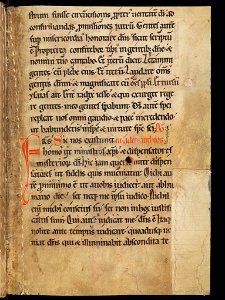 strum fuisse circumcisionis ppter ueritate di ad
confirmandas pmissiones patrum. Gentes aute
sup misericordia honorare dm sicut scriptu
e. Propterea confitebor tibi in gentib; dne &
nomini tuo cantabo. Et iteru dicit. Letamini
gentes cu plebe eius. Et iteru. Laudate oms
gentes dnm & magnificate eu oms
isaias ait. Erit radix iesse & qui exurget
regere gentes in eu gentes sperabunt. Ds aute spei
repleat uos omni gaudio & pace in credendo
ut habundetis in spe & in uirtute sps sci. Ad
Sic nos existimet
homo ut ministros xpi & dispensatores
misteriorum di. Hic iam querit inter dispen
satores ut fidelis quis inueniatur. Michi aute
p minimo e ut a uobis iudicer aut ab huma
no die. Set neq; me ipsu iudico. Nichil
eni michi conscius su. Set non in hoc iustifi
catus sum. Qui aute iudicat me dns e. Itaq;
nolite ante tempus iudicare quoadusq; ue
niat dns qui & illuminabit abscondita te